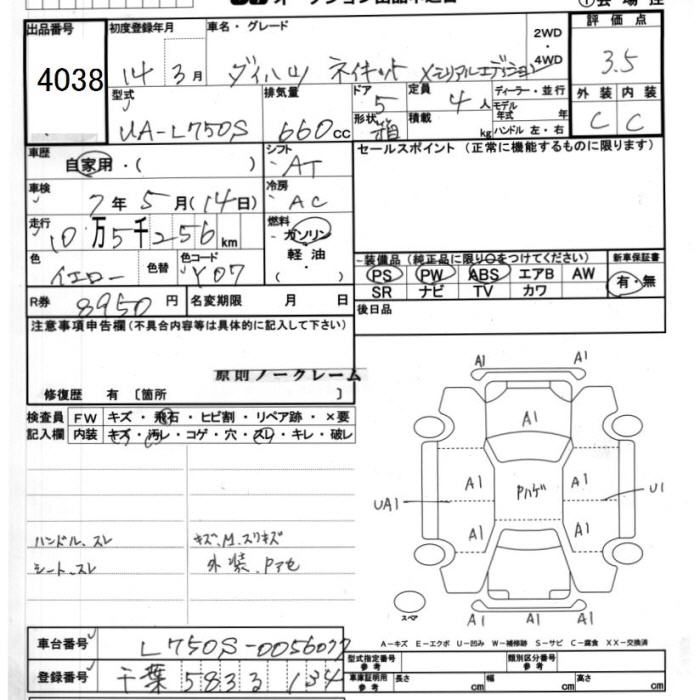 出品番号 初度登録年月 車名・グレード 2WD・4WD 評価点
4038 14 3月 ダイハツ ネイキッド メモリアルエディション 3.5
型式 排気量 ドア 5 定員 4人 ディーラー・並行 外装 内装
UA-L750S 660cc 形状 箱 積載 kg モデル年式 年 ハンドル 左・右 C C
車歴 自家用・( ) シフト AT セールスポイント (正常に機能するものに限ります)
車検 7年5月(14日) 冷房 AC
走行 10万5千256km 燃料 ガソリン 軽油 ( )
装備品 (純正品に限り〇をつけてください) 新車保証書
色 イエロー 色替 色コード Y07 PS PW ABS エアB AW 有・無
SR ナビ TV カワ
R券 8950円 名変期限 月 日 後日品
注意事項申告欄 (不具合内容等は具体的に記入して下さい)
原則ノークレーム
修復歴 有 〔箇所 〕
検査員 FW キズ・飛石・ヒビ割・リペア跡・×要
記入欄 内装 キズ・汚レ・コゲ・穴・スレ・キレ・破レ
A1 A1
A1
A1 Pハゲ A1
UA1 U1
A1 A1
ハンドル、スレ キズ、M、スリキズ
シート、スレ 外装、Pアセ
スペア
A1 A1 A1
車台番号 L750S-0056077
A-キズ E-エクボ U-凹み W-補修跡 S-サビ C-腐食 XX-交換済
型式指定番号 参考 類別区分番号 参考
登録番号 千葉 583 る 134
車庫証明用 参考 長さ cm 幅 cm 高さ cm